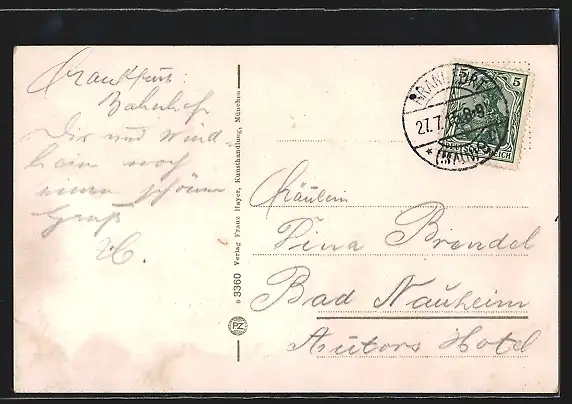 Frankfurt
Bahnhof
Dir und
noch
einen schönen
Gruß
H.
9 3360 Verlag Franz Hayer, Kunsthandlung, München
PZ
5
27.7.
(MAIN)
REICH
Fräulein
Tina Brendel
Bad Nauheim
Hotel